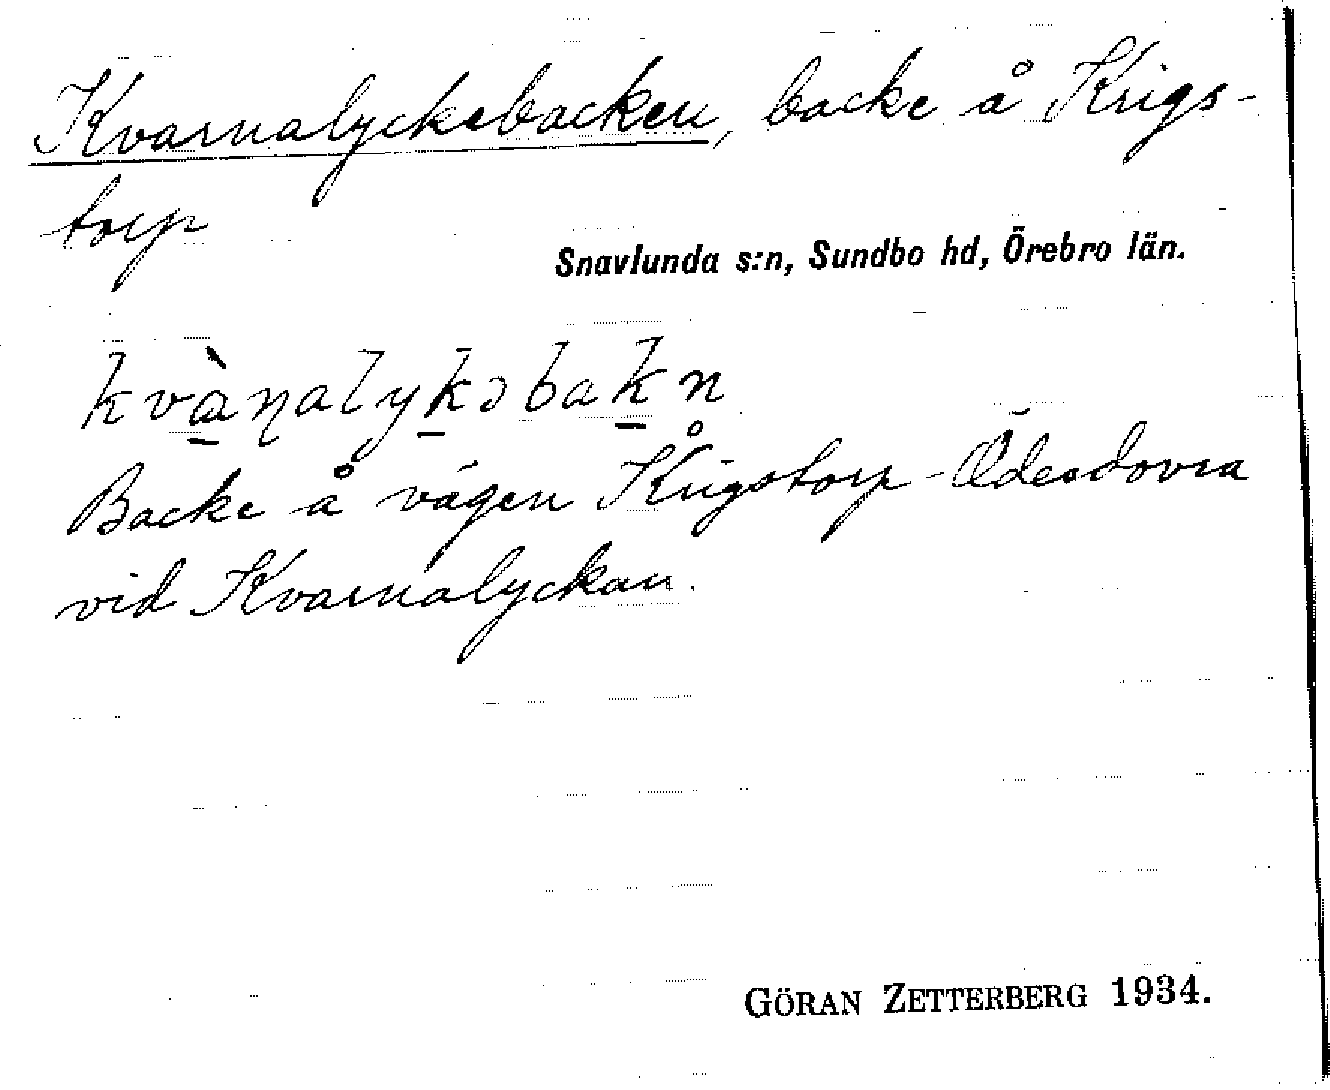 Kvarnalyckebacken, backe å Krigs-
torp
Snavlunda s:n, Sundbo hd, Örebro län.
kvàɳalykəbakn
Backe å vägen Krigstorp - Ödesdovra
vid Kvarnalyckan.
GÖRAN ZETTERBERG 1934.